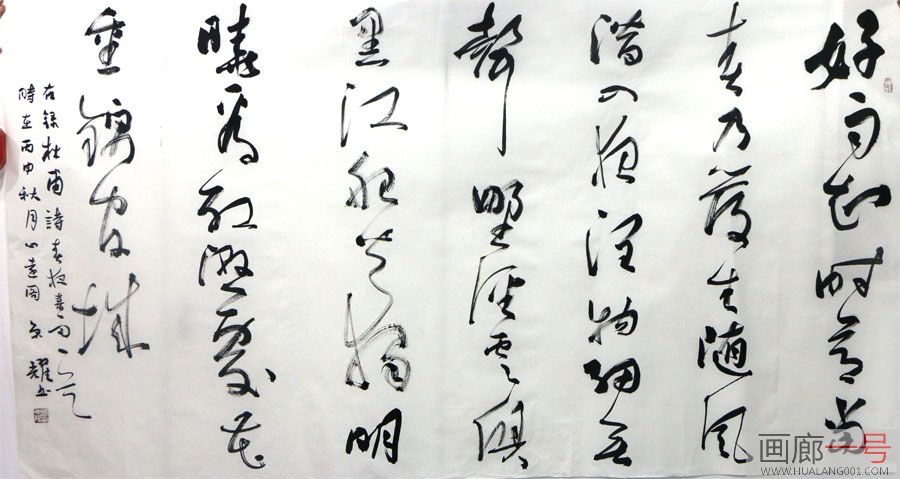 好雨知时节當
春乃發生随風
潜入夜润物细无
聲野径雲俱
黑江船火獨明
曉看红濕處花
重錦官城
右録杜甫詩春夜喜雨一首
時在丙申秋月心遠閣耀书
画廊一号
WWW.HUALANG001.COM